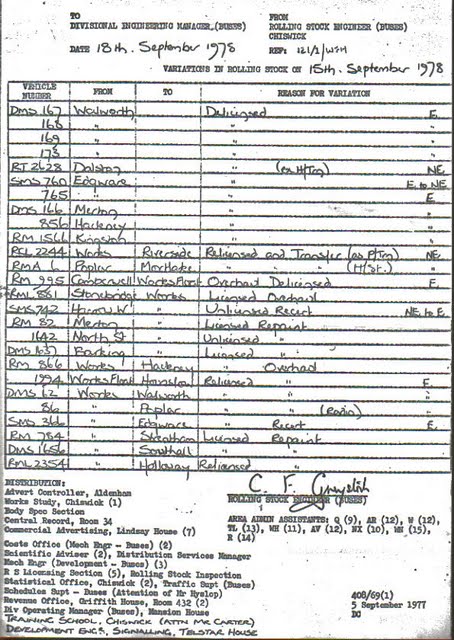 TO FROM
DIVISIONAL ENGINEERING MANAGER,(BUSES) ROLLING STOCK ENGINEER (BUSES)
CHISWICK
DATE 18th. September 1978 REF: 121/1/WJH
VARIATIONS IN ROLLING STOCK ON 15th. September 1978
VEHICLE NUMBER FROM TO REASON FOR VARIATION
DMS 167 Walworth Delicensed E.
168 " " "
169 " " "
173 " " "
RT 2628 Dalston " (ex H/Trg) NE.
SMS 760 Edgware " E. to NE
765 " " E.
DMS 166 Merton " "
856 Hackney " "
RM 1566 Kingston " "
RCL 2244 Works Riverside Relicensed and Transfer (as P/Trg) NE.
RMA 6 Poplar Mortlake " " " (H/St.) "
RM 995 Camberwell Works Float Overhaul Delicensed E.
RML 881 Stonebridge Works Licensed Overhaul
SMS 742 Harrow W. " Unlicensed Recert NE to E.
RM 82 Merton " Licensed Repaint
1642 North St " Unlicensed "
DMS 1637 Barking " Licensed "
RM 866 Works Hackney " Overhaul
1994 Works Float Hanslow Relicensed " E.
DMS 62 Works Walworth " " "
86 " Poplar " " (Radio) "
SMS 366 " Edgware " Recert E.
RM 784 " Streatham Licensed Repaint
DMS 1656 " Southall " "
RML 2354 " Holloway Relicensed "
DISTRIBUTION:
Advert Controller, Aldenham
Works Study, Chiswick (1)
Body Spec Section
Central Record, Room 34
Commercial Advertising, Lindsay House (7)
Costs Office (Mech Engr - Buses) (2)
Scientific Adviser (2), Distribution Services Manager
Mech Engr (Development - Buses) (3)
R S Licensing Section (5), Rolling Stock Inspection
Statistical Office, Chiswick (2), Traffic Supt (Buses)
Schedules Supt - Buses (Attention of Mr Hyslop)
Revenue Office, Griffith House, Room 432 (2)
Div Operating Manager (Buses), Mansion House
TRAINING SCHOOL, CHISWICK (ATTN MR CARTER)
DEVELOPMENT ENG. SIGNALLING, TELSTAR HOUSE
C. F.
ROLLING STOCK ENGINEER (BUSES)
AREA ADMIN ASSISTANTS: Q (9), AR (12), W (12),
TL (13), WH (11), AV (12), NX (10), WN (15),
R (14)
408/69(1)
5 September 1977
DO